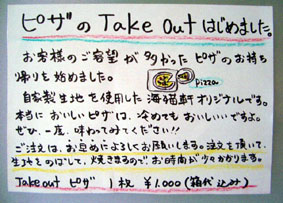 ピザの Take Out はじめました。
お客様のご希望が多かった ピザのお持ち
帰りを始めました。
pizza
自家製生地を使用した 海猫軒オリジナルです。
本当においしいピザは、冷めてもおいしいですよ。
ぜひ、一度、味わってみてください!!
ご注文は、お早めによろしくお願いします。注文を頂いて、
生地をのばして、焼きますので お時間が少々かかります。
Take out ピザ 1枚 ¥1,000 (箱代込み)